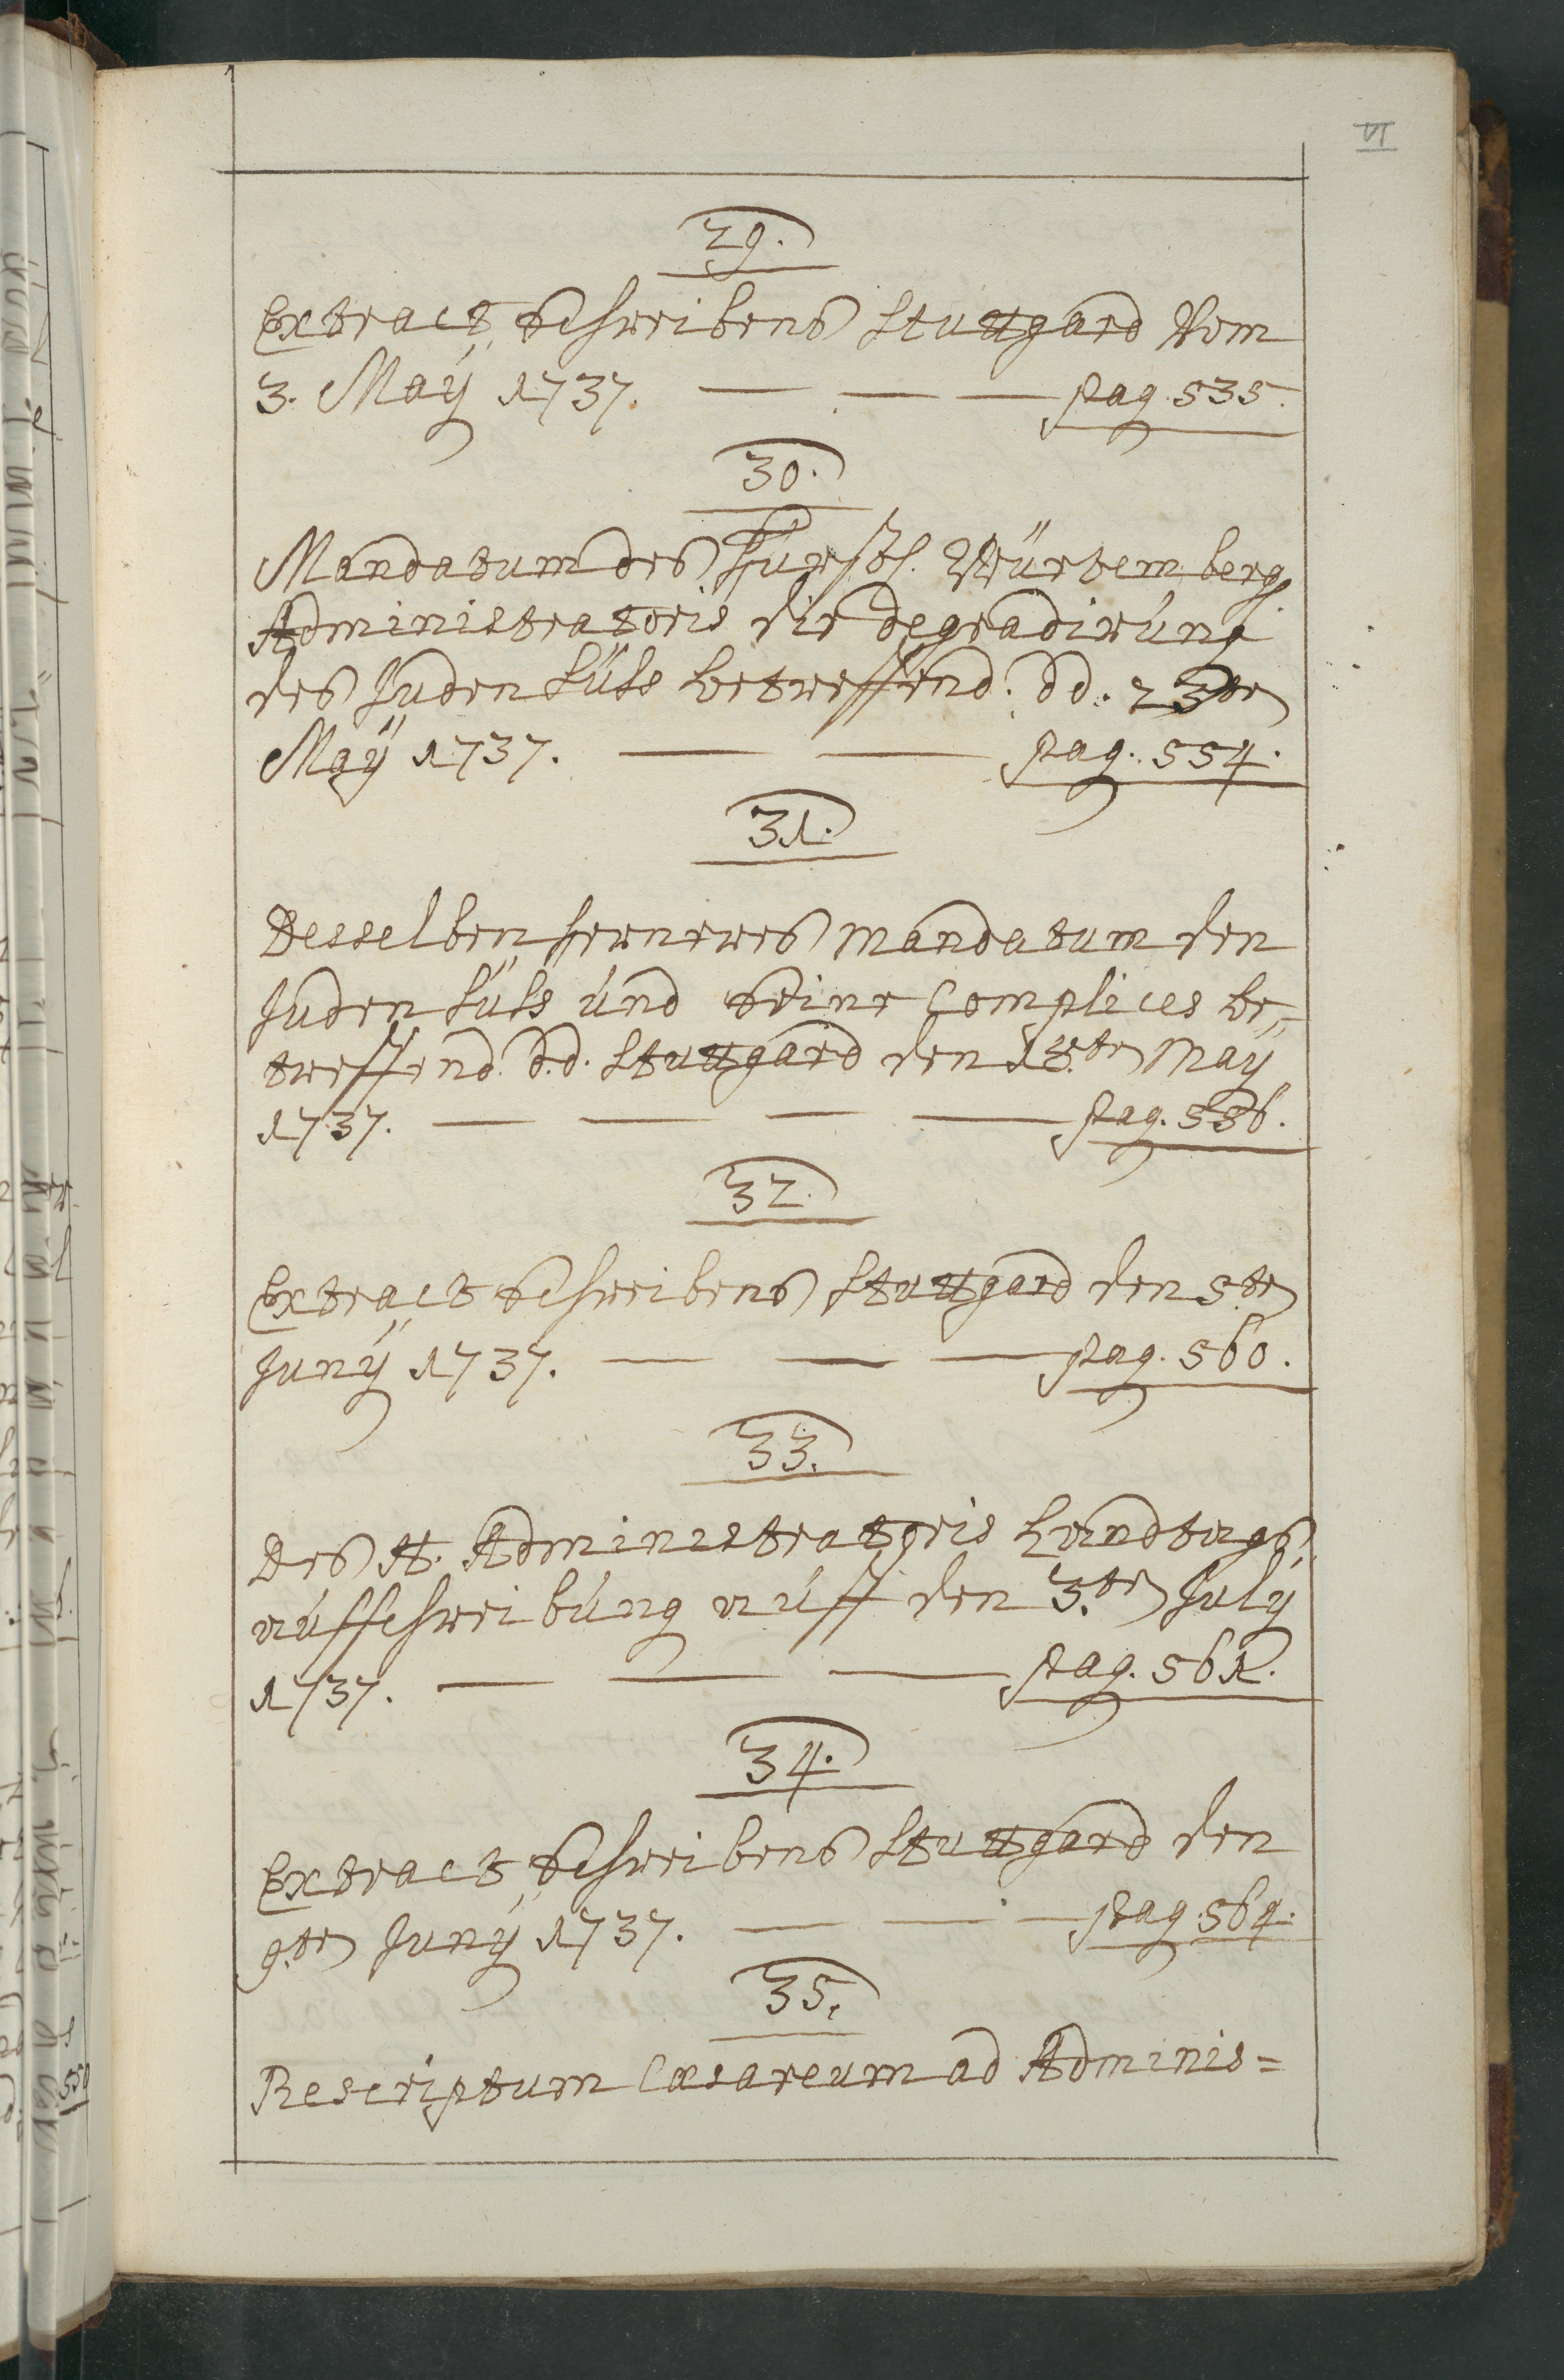 VI
29.
Extract Schreibens Stuttgard Vom
3. Maÿ 1737. — — — pag. 535.
30.
Mandatum des Fürstl. Würtemberg.
Administratoris die degradirung
des Juden Süss betreffend. dd. 23ten
Maÿ 1737. — — pag. 554.
31.
Desselben ferneres Mandatum den
Juden Süss und seine Complices be=
treffend. d.d. Stuttgard den 18.ten Maÿ
1737. — — — — pag. 556.
32.
Extract Schreibens Stuttgard den 5.ten
Junÿ 1737. — — — pag. 560.
33.
Des H. Administratoris Landtags
ausschreibung auff den 3.ten July
1737. — — — pag. 561.
34.
Extract Schreibens Stuttgard den
9.ten Junÿ 1737. — — — pag. 564.
35.
Rescriptum Cæsareum ad Adminis=